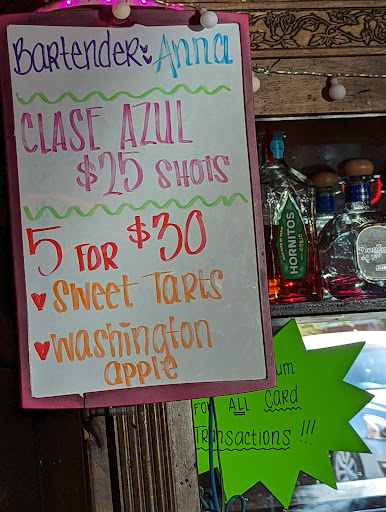 Bartender: Anna
CLASE AZUL
$25 SHOTS
5 FOR $30
Sweet Tarts
Washington
apple
HORNITOS
FOR ALL Card
Transactions !!!